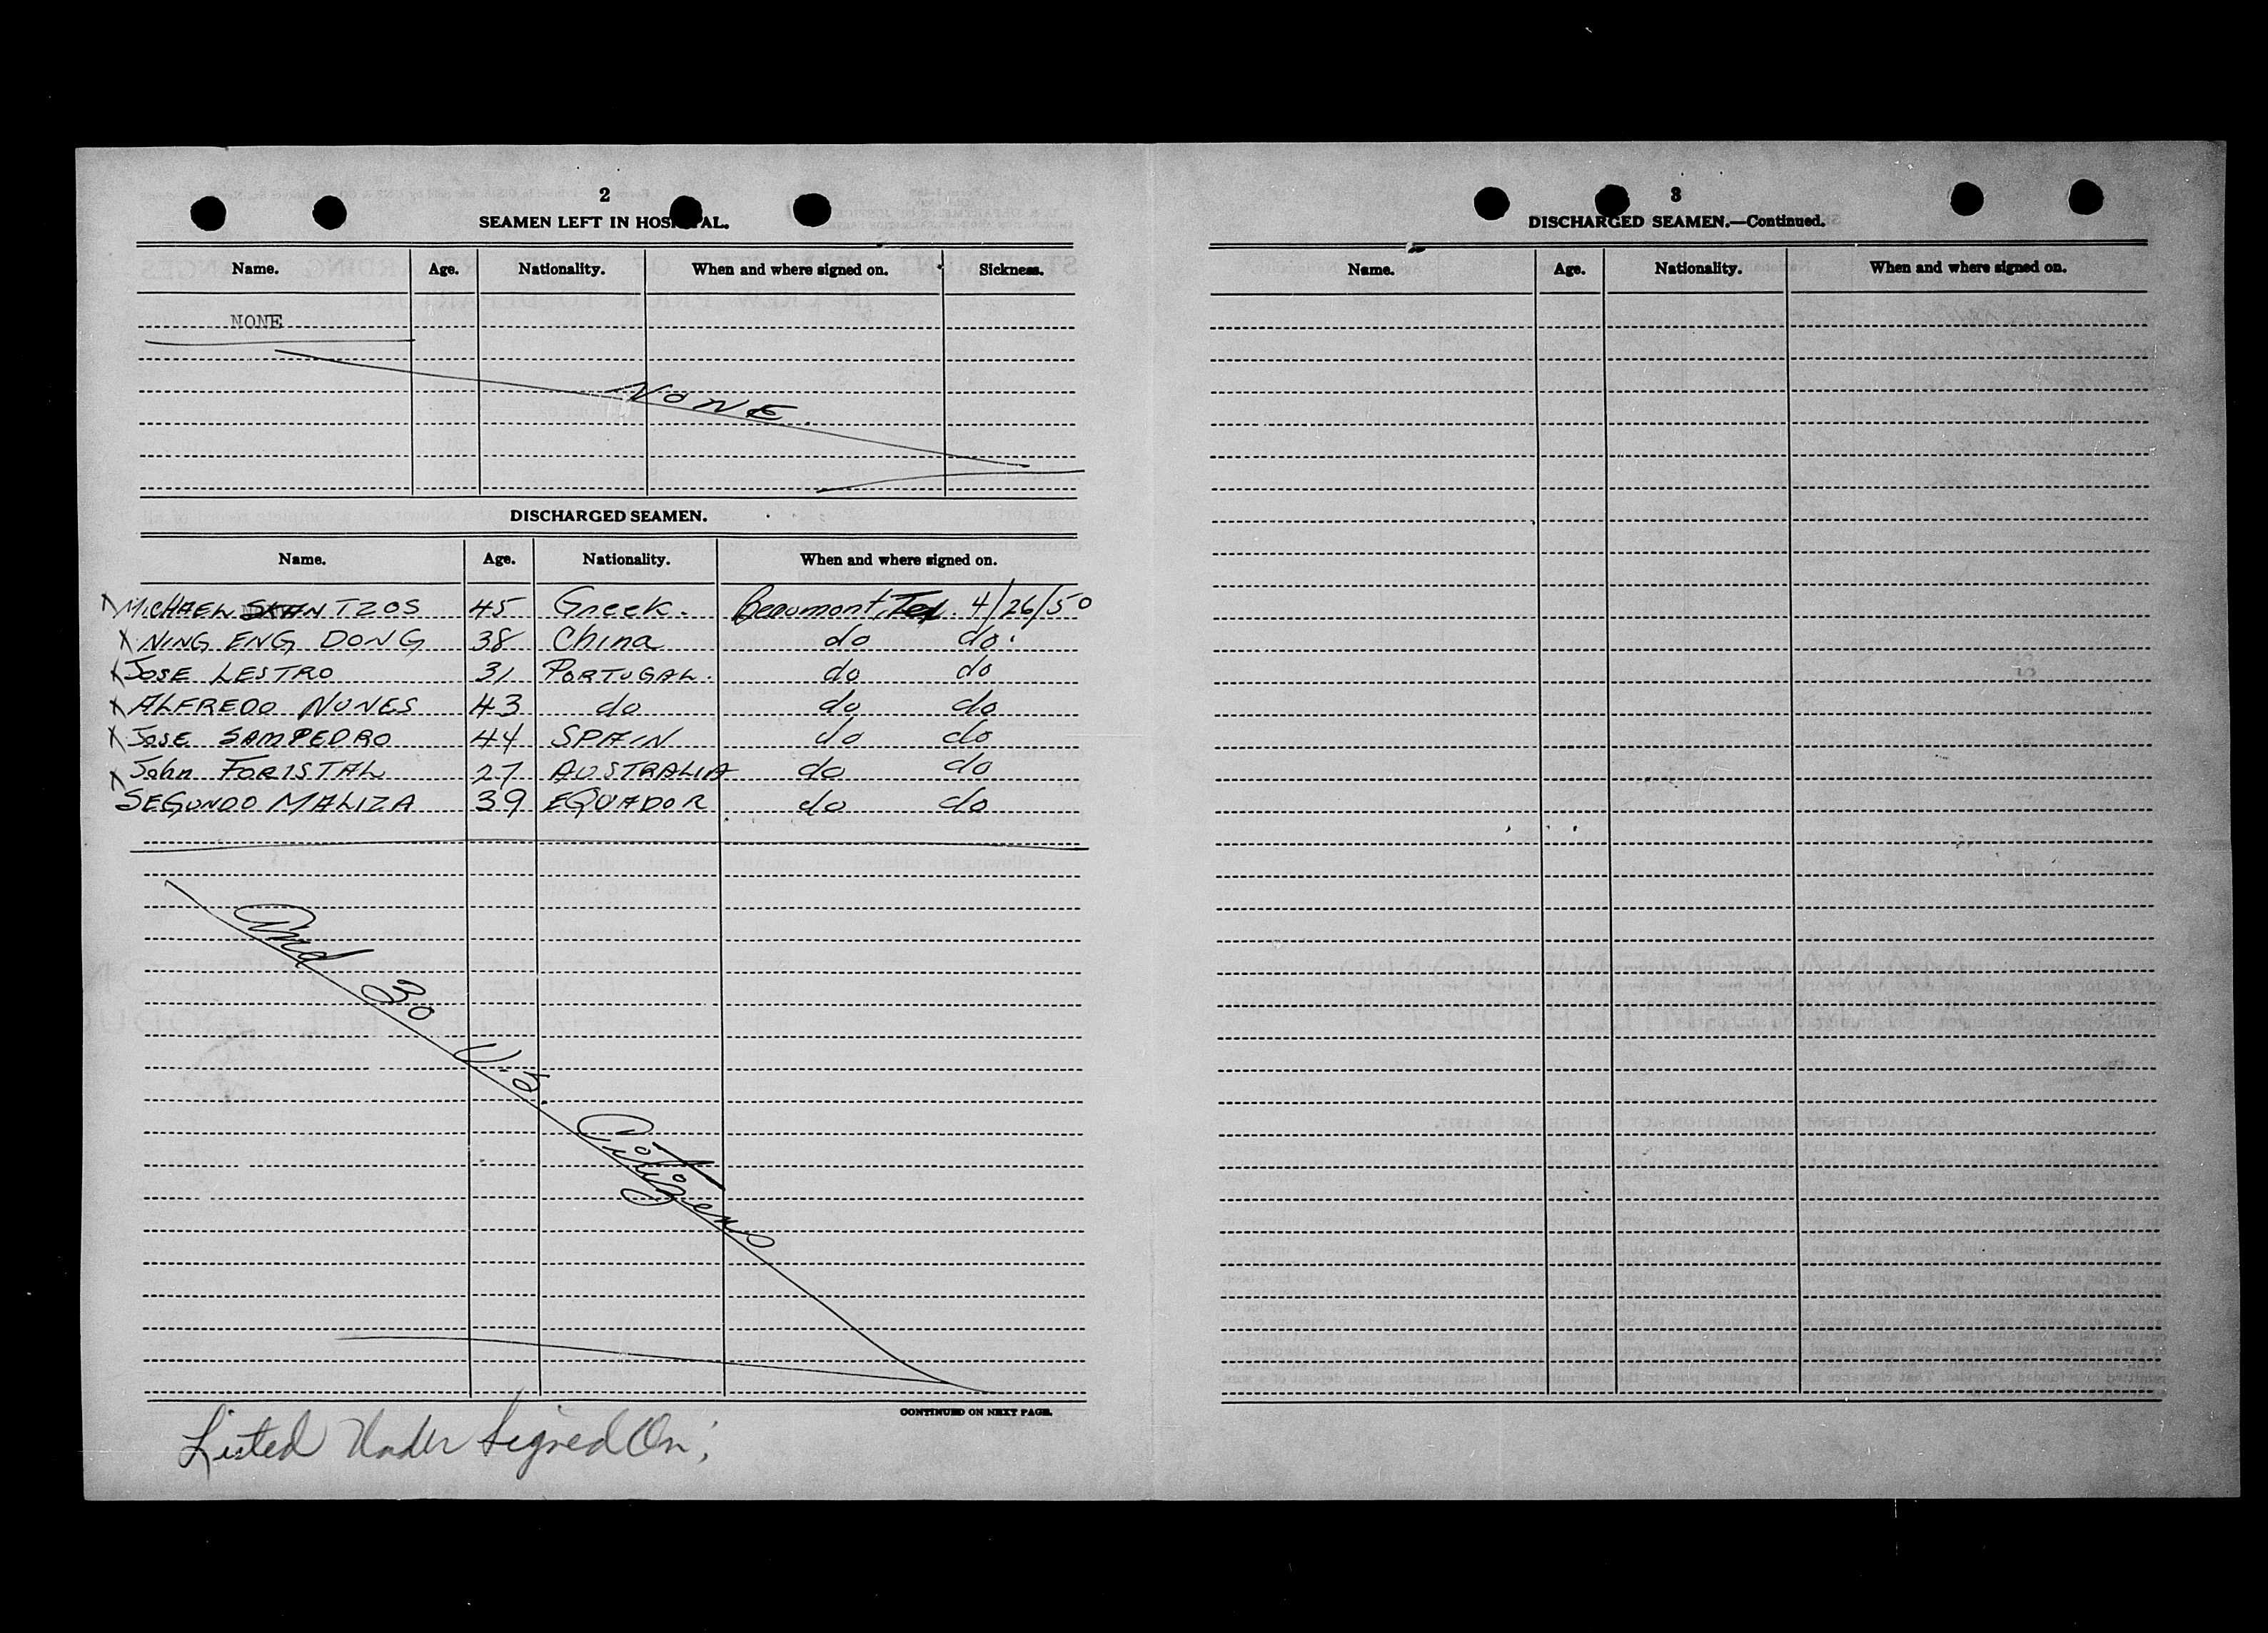 2
SEAMEN LEFT IN HOSPITAL.
Name. Age. Nationality. When and where signed on. Sickness.
NONE
NONE.
DISCHARGED SEAMEN.
Name. Age. Nationality. When and where signed on.
X MICHAEL SKANTZOS 45 Greek. Beaumont, Tex. 4/26/50
X NING ENG DONG 38 China do do.
X JOSE LESTRO 31 PORTUGAL. do do
X ALFREDO NUNES 43 do do do
X JOSE SAMPEDRO 44 SPAIN do do
X John FORISTAL 27 AUSTRALIA do do
SEGUNDO MALIZA 39 EQUADOR do do
And 30 U.S. Citizens
CONTINUED ON NEXT PAGE.
Listed Under Signed On;
3
DISCHARGED SEAMEN.—Continued.
Name. Age. Nationality. When and where signed on.